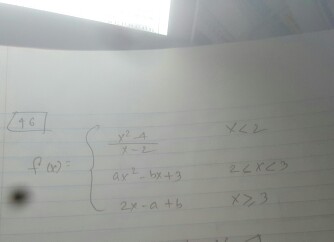 46
f(x) = { x² - 4 / x - 2    x < 2
ax² - bx + 3    2 < x < 3
2x - a + b    x ≥ 3